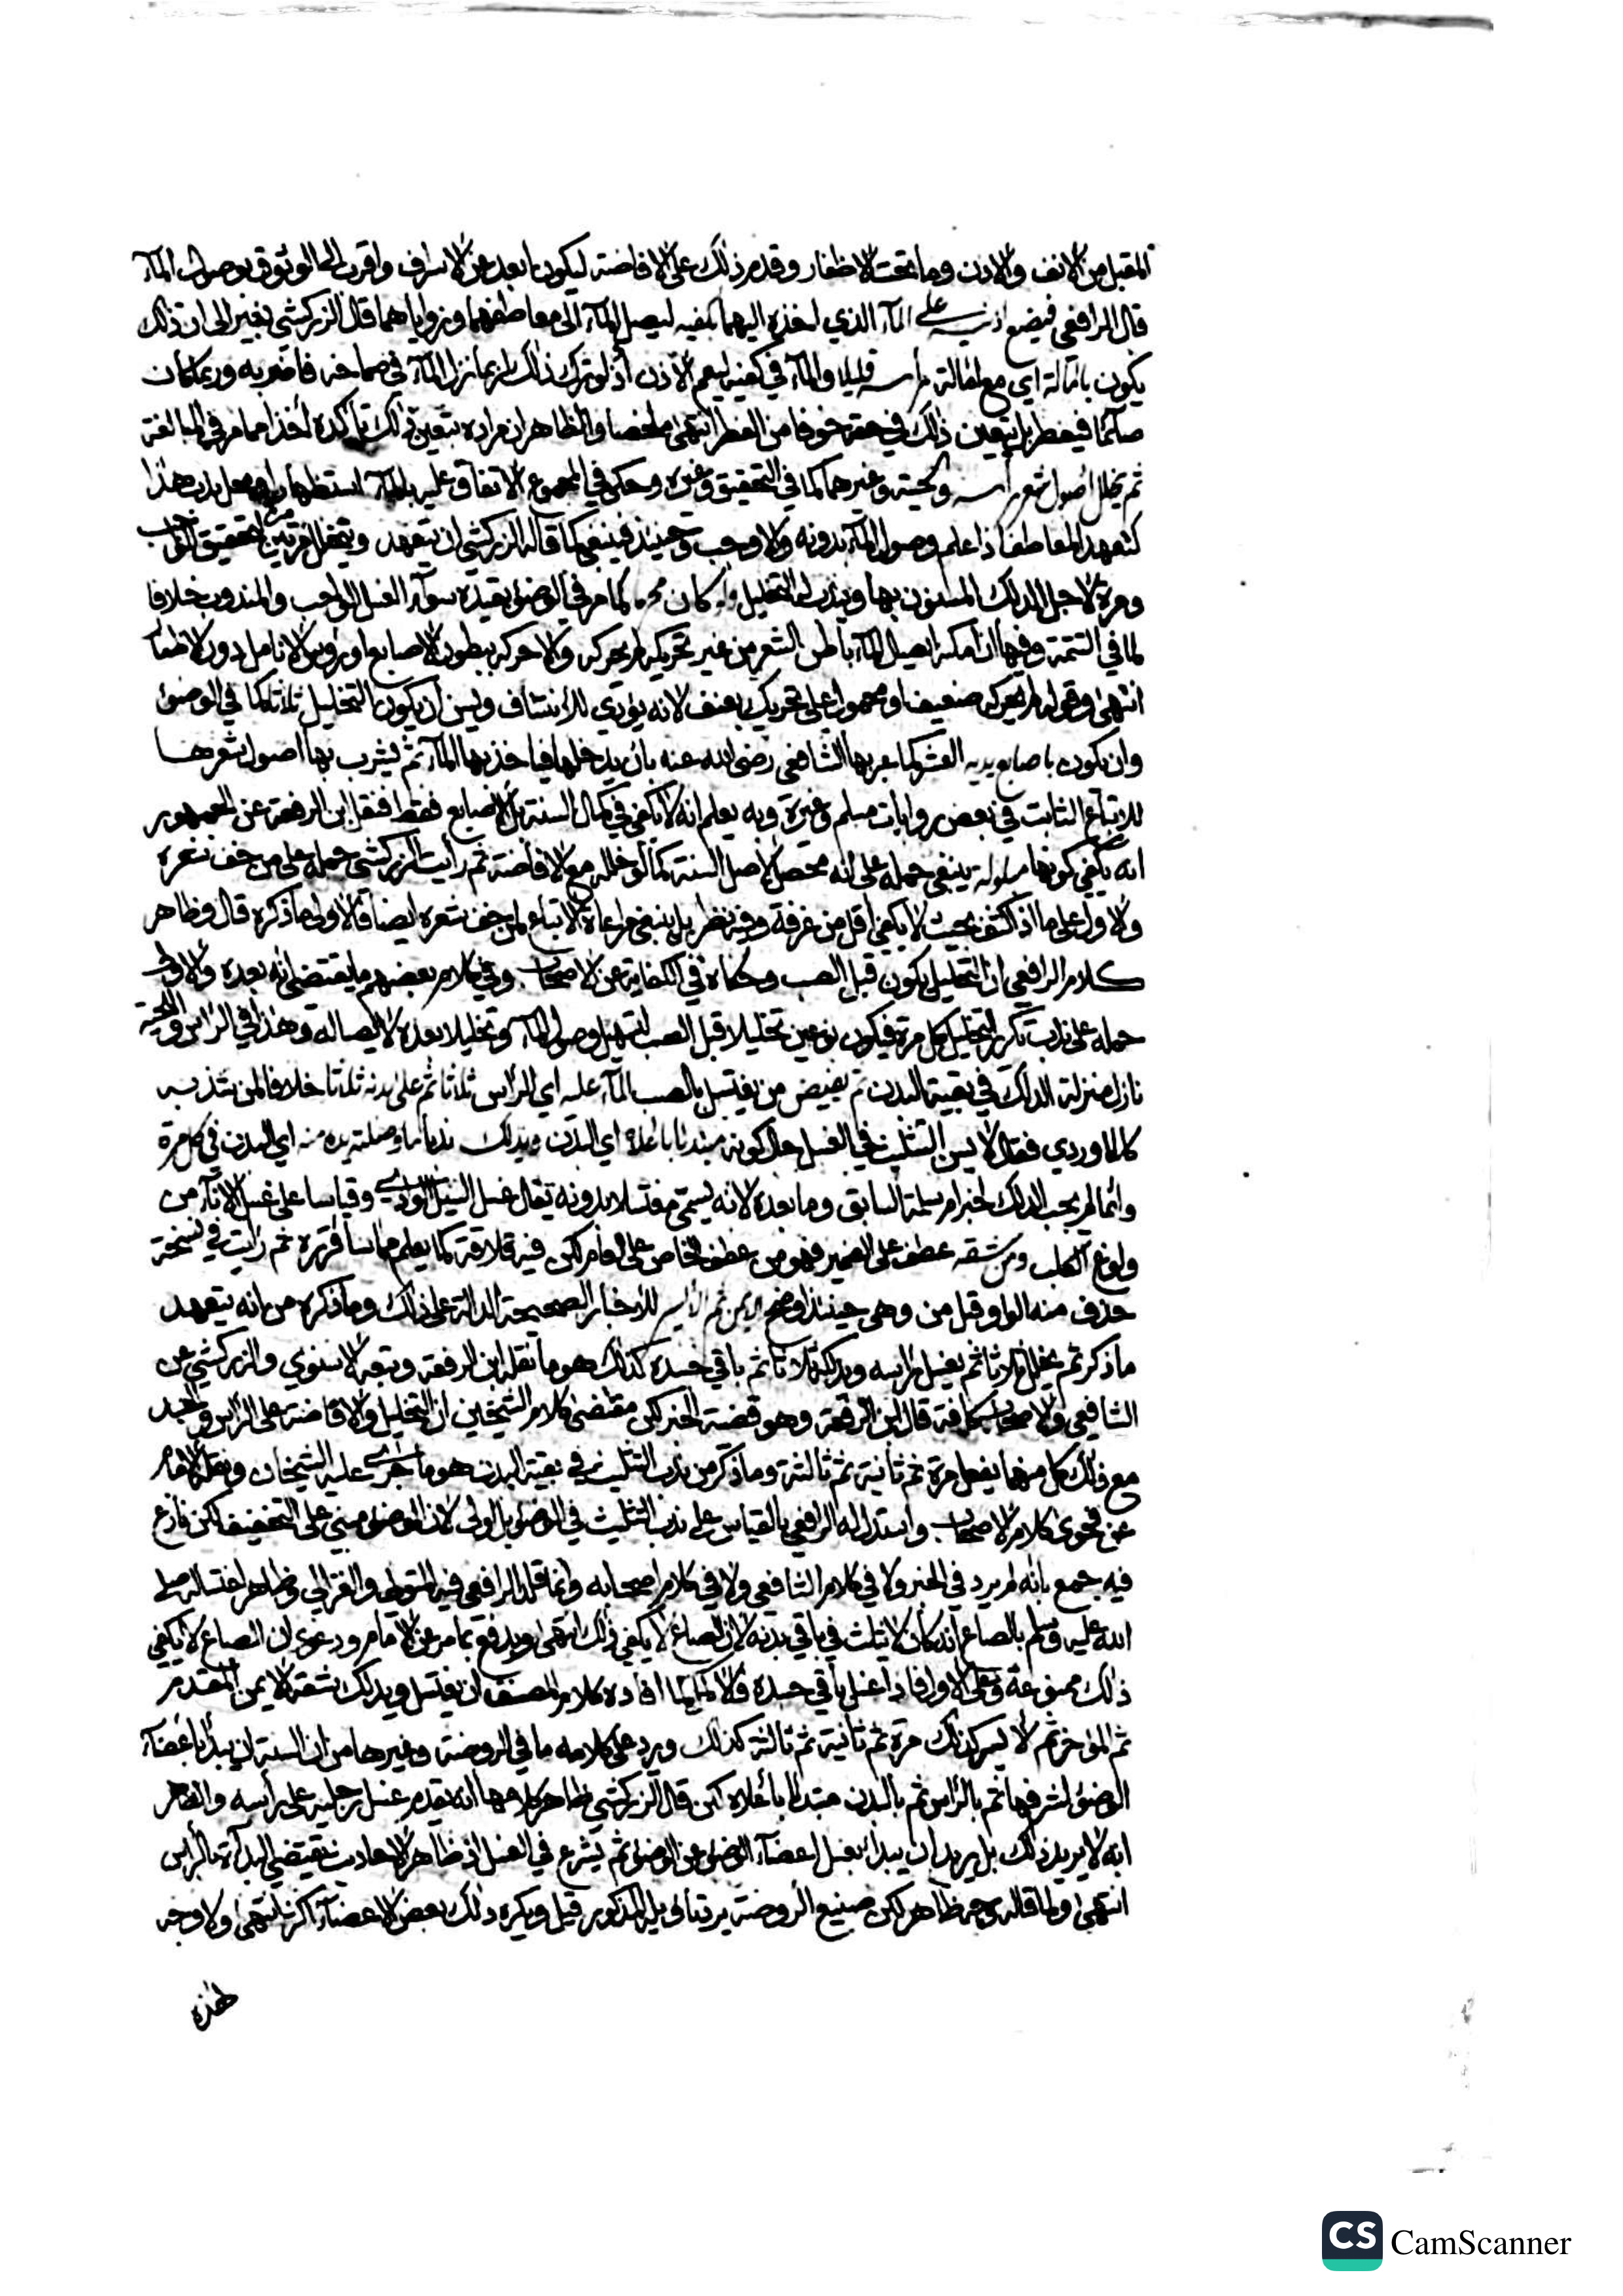 المقبل من الانف والاذن وما تحت الاظفار وقدم ذلك على الافاضة ليكون ابعد عن الاسراف واقرب الى الوثوق بوصول المآء
قال الرافعي فيضع اذنيه على المآء الذي اخذه اليهما بكفيه ليصل المآء الى معاطفهما وزواياهما قال الزركشي يشير الى ان ذلك
يكون بامالة اي مع امالة راسه قليلا والمآء في كفيه ليعم الاذن اذ لو ترك ذلك لربما نزل المآء في صماخه فاضر به وربما كان
صآئما فيفطر بل يتعين ذلك في حقه خوفا من الفطر انتهى ملخصا والظاهر ان مراده بتعين ذلك تاكده اخذا مما مر في المبالغة
ثم يخلل اصول شعر راسه ولحيته وغيرهما كما في التحقيق وغيره وحكى في المجموع الاتفاق عليه بالمآء استظهارا ومحل ندب هذا
كتعهد المعاطف اذا علم وصول المآء بدونه والا وجب وحينئذ فينبغي كما قاله الزركشي ان يتعهد ويخلل مرتين مرة لتحقيق الواجب
ومرة لاجل الدلك المسنون بها ويندب له التخليل وان كان محرما كما مر في الوضوء بقيده سوآء الغسل الواجب والمندوب خلافا
لما في التتمة وفيها ان امكنه ايصال المآء باطن الشعر من غير تحريكه لم يحركه والا حركه ببطون الاصابع او رؤس الانامل دون الاظفار
انتهى وقوله لم يحركه ضعيف او محمول على تحريك بعنف لانه يؤدي للانتتاف ويسن ان يكون التخليل ثلاثا كما في الوضوء
وان يكون باصابع يديه العشر كما عبر بها الشافعي رضى الله عنه بان يدخلها فياخذ بها المآء ثم يشرب بها اصول شعرها
للاتباع الثابت في بعض روايات مسلم وغيره وبه يعلم انه لا يكفي في كمال السنة بل الاصابع فقط فنقل ابن الرفعة عن الجمهور
انه يكفي كونها مبلولة ينبغي حمله على انه محصل لاصل السنة كما لو خلله مع الافاضة ثم رايت الزركشي حمله على من خف شعره
والاول على ما اذا كثف بحيث لا يكفي اقل من غرفة وفيه نظر بل ينبغي مراعاة الاتباع لمن خف شعره ايضا فالاولى ما ذكره قال وظاهر
كلام الرافعي ان التخليل يكون قبل الصب وحكاه في الكفاية عن الاصحاب وفي كلام بعضهم ما يقتضى انه بعده والاولى
حمله على ندب تكرر التخليل كل مرة فيكون نوعين تخليلا قبل الصب لتسهيل وصول المآء وتخليلا بعده لايصاله وهذا في الراس واللحية
نازل منزلة الدلك في بقية البدن ثم يفيض من يغتسل بالصب المآء عليه اي الراس ثلاثا ثم على بدنه ثلاثا خلافا لمن شذ به
كالماوردي فقال لا يسن التثليث في الغسل حال كونه مبتدئا باعلاه اي البدن ويدلك ندبا ما وصلته يده منه اي البدن في كل مرة
وانما لم يجب الدلك لخبر ام سلمة السابق وما بعده لانه يسمى مغتسلا بدونه يقال غسل السيل الوادي وقياسا على غسل الانآء من
ولوغ الكلب ومن شقه عطف على الضمير فهو من عطف الخاص على العام لكن فيه قلاقة كما يعلم مما ساقرره ثم رايت في نسخة
حذف منه الواو قبل من وهى حينئذ اوضح الايمن ثم الايسر للاخبار الصحيحة الدالة على ذلك وما ذكره من انه يتعهد
ما ذكر ثم يخلل ثلاثا ثم يغسل راسه ويدلكه ثلاثا ثم باقي جسده كذلك هو ما نقله ابن الرفعة وتبعه الاسنوي والزركشي عن
الشافعي والاصحاب كافة قال ابن الرفعة وهو قضية الخبر لكن مقتضى كلام الشيخين ان التخليل والافاضة على الراس والجسد
مع ذلك كل منهما يفعل مرة ثم ثانية ثم ثالثة وما ذكر من ندب التثليث في بقية البدن هو ما جرى عليه الشيخان ونقله الامام
عن فحوى كلام الاصحاب واستدل له الرافعي بالقياس على ندب التثليث في الوضوء بل اولى لان الوضوء مبني على التخفيف لكن نازع
فيه جمع بانه لم يرد في الخبر ولا في كلام الشافعي ولا في كلام اصحابه وانما قلد الرافعي فيه المتولي والغزالي وظاهر اغتساله صلى
الله عليه وسلم بالصاع انه كان لا يثلث في باقي بدنه لان الصاع لا يكفي ذلك انتهى ويدفع بما مر عن الامام ودعوى ان الصاع لا يكفي
ذلك ممنوعة وعلى الاول فاذا غسل باقي جسده فالاكمل كما افاده كلام المصنف ان يغتسل ويدلك شقه الايمن المقدم
ثم المؤخر ثم الايسر كذلك مرة ثم ثانية ثم ثالثة كذلك ويرد على كلامه ما في الروضة وغيرها من ان السنة ان يبدا باعضآء
الوضوء لشرفها ثم بالراس ثم بالبدن مبتدئا باعلاه لكن قال الزركشي ظاهر كلامها انه يقدم غسل رجليه على راسه والظاهر
انه لا يريد ذلك بل يريد ان يبدا بغسل اعضآء الوضوء عن الوضوء ثم يشرع في الغسل اذ ظاهر الاحاديث يقتضي البدآءة بالراس
انتهى ولما قاله وجه ظاهر لكن صنيع الروضة يرد تاويله المذكور قيل ويكره دلك بعض الاعضآء اكثر انتهى ولا وجه
هذه
CS CamScanner